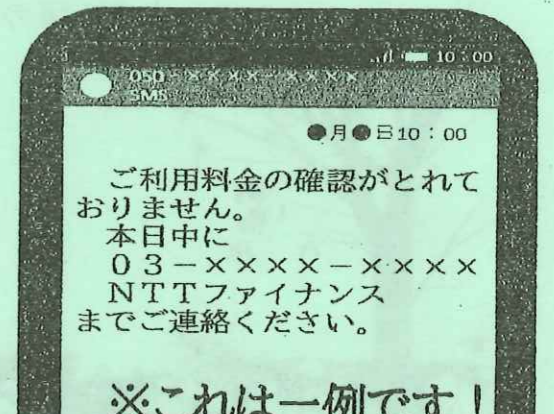 10:00
050-××××-××××
SMS
●月●日10：00
ご利用料金の確認がとれて
おりません。
本日中に
03-××××-××××
NTTファイナンス
までご連絡ください。
※これは一例です！